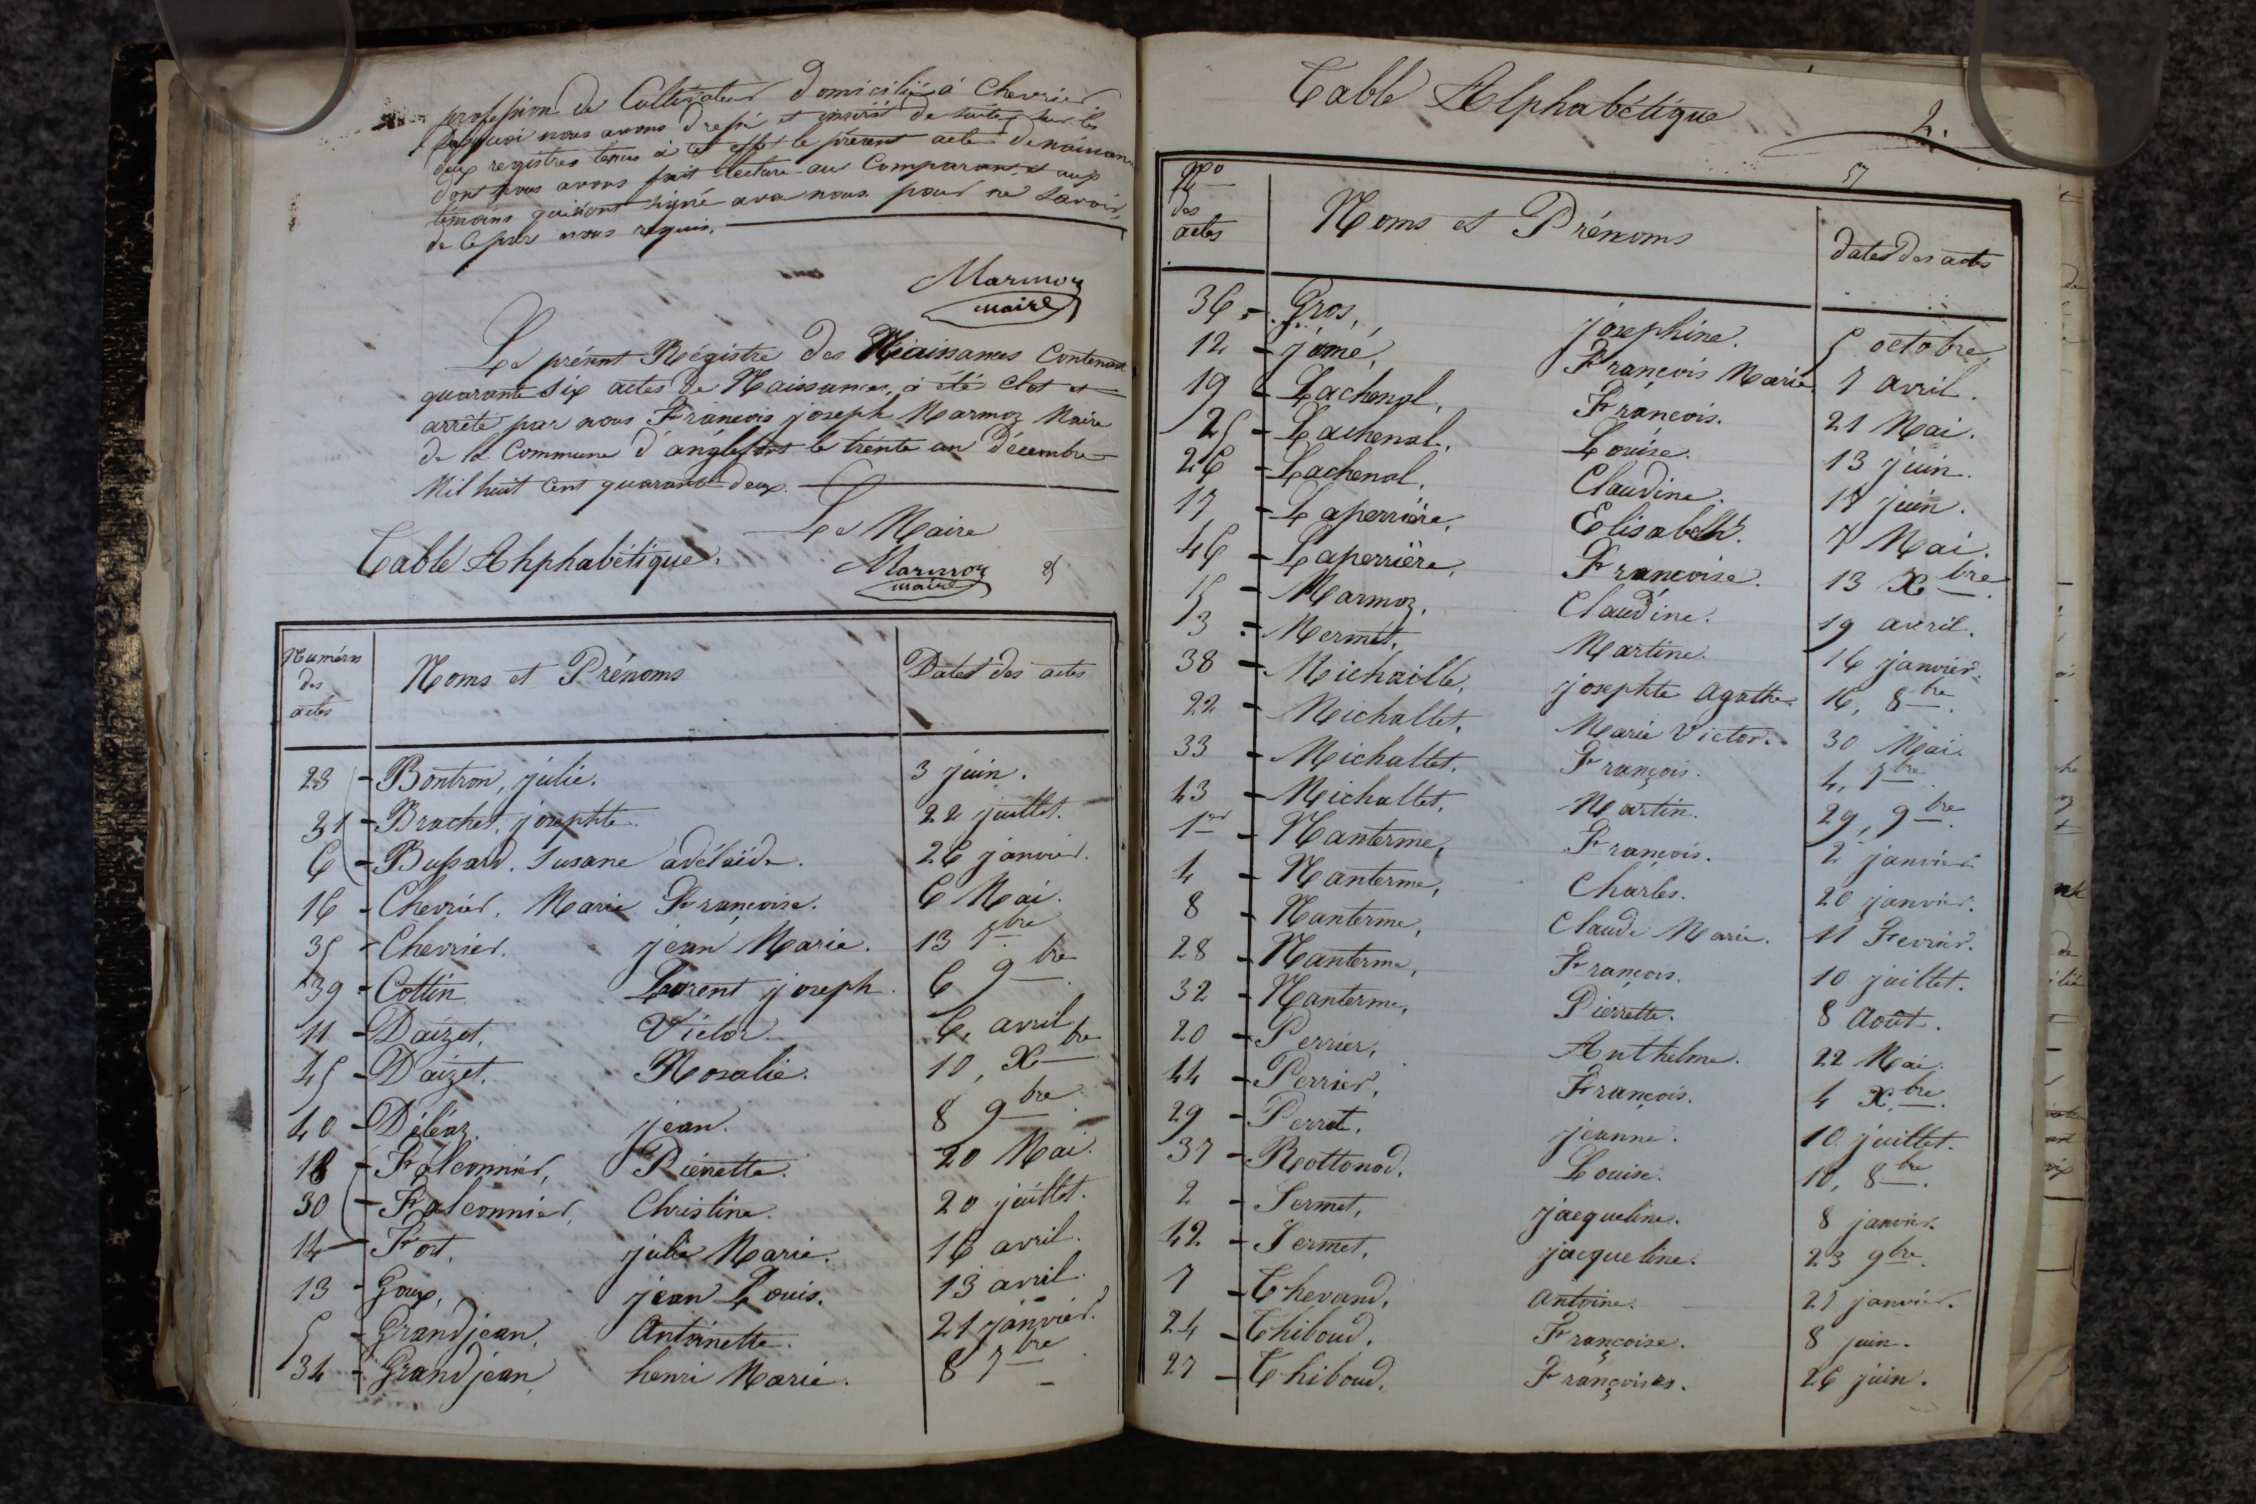 profession de Cultivateur domicilié à Chevrier
pourquoi nous avons dressé et inscrit de suite sur les
deux registres tenus à cet effet le présent acte de naissance
dont nous avons fait lecture au Comparant et aux
témoins qui n'ont signé avec nous pour ne savoir
de ce par nous requis.
Marmoz
maire
Le présent Régistre des Naissances Contenant
quarante six actes de Naissances, à été clos et
arrêté par nous François joseph Marmoz Maire
de la Commune d'anglefort le trente un Décembre
Mil huit Cent quarante deux.
Le Maire
Table Alphabétique.
Marmoz
maire
Numéros des actes
Noms et Prénoms
Dates des actes
23 - Bontron, julie. 3 juin.
31 - Brachet, josephte. 22 juillet.
6 - Bussard. Susane adélaïde. 26 janvier.
16 - Chevrier. Marie Françoise. 6 Mai.
35 - Chevrier. jean Marie. 13 7bre
39 - Cottin Lorent joseph. 6 9bre
11 - Daizet. Victor. 6, avril
45 - Daizet. Rosalie. 10, Xbre
40 - Déléaz. jean. 8 9bre
18 - Falconnier, Pierrette. 20 Mai.
30 - Falconnier, Christine. 20 juillet.
14 - Fort. julie Marie. 16 avril.
13 - Goux, jean Louis. 13 avril.
5 - Grandjean, Antoinette. 21 janvier.
34 - Grandjean, henri Marie. 8 7bre
Table Alphabétique
2.
Nos des actes
Noms et Prénoms
dates des actes
36. - Gros, josephine. 5 octobre.
12 - jómé, François Marie 7 avril.
19 - Lachenal, François. 21 Mai.
25 - Lachenal, Louise. 13 juin.
26 - Lachenal, Claudine. 17 juin.
17 - Laperrière, Elisabeth. 7 Mai.
46 - Laperrière, Françoise. 13 Xbre.
15 - Marmoz, Claudine. 19 avril.
3 - Mermet, Martine. 16 janvier.
38 - Michaille, josephte Agathe. 16, 8bre.
22 - Michallet, Marie Victor. 30 Mai.
33 - Michallet, François. 4, 7bre.
43 - Michallet, Martin. 29, 9bre.
1er - Nanterme, François. 2 janvier
4 - Nanterme, Charles. 20 janvier.
8 - Nanterme, Claude Marie. 11 Fevrier.
28 - Nanterme, François. 10 juillet.
32 - Nanterme, Pierrette. 8 Août.
20 - Perrier, Anthelme. 22 Mai.
44 - Perrier, François. 4 Xbre.
29 - Perret, jeanne. 10 juillet.
37 - Rottonod, Louise. 10, 8bre.
2 - Sermet, jacqueline. 8 janvier.
42 - Sermet, jacqueline. 23 9bre.
7 - Thevand, Antoine. 27 janvier.
24 - Thiboud, Françoise. 8 juin.
27 - Thiboud, François. 26 juin.